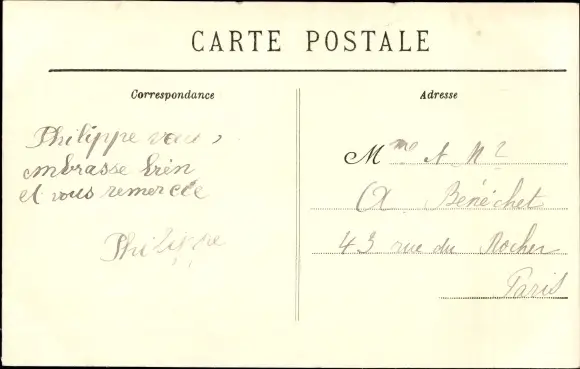 CARTE POSTALE
Correspondance
Adresse
Philippe vous
embrasse bien
et vous remercie
Philippe
Mme
A Bénéchet
43 rue du Rocher
Paris